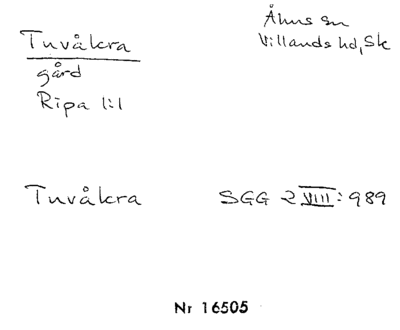 Tuvåkra
gård
Ripa 1:1
Åhus sn
Villands hd, Sk
Tuvåkra
SGG 2 VIII: 989
Nr 16505